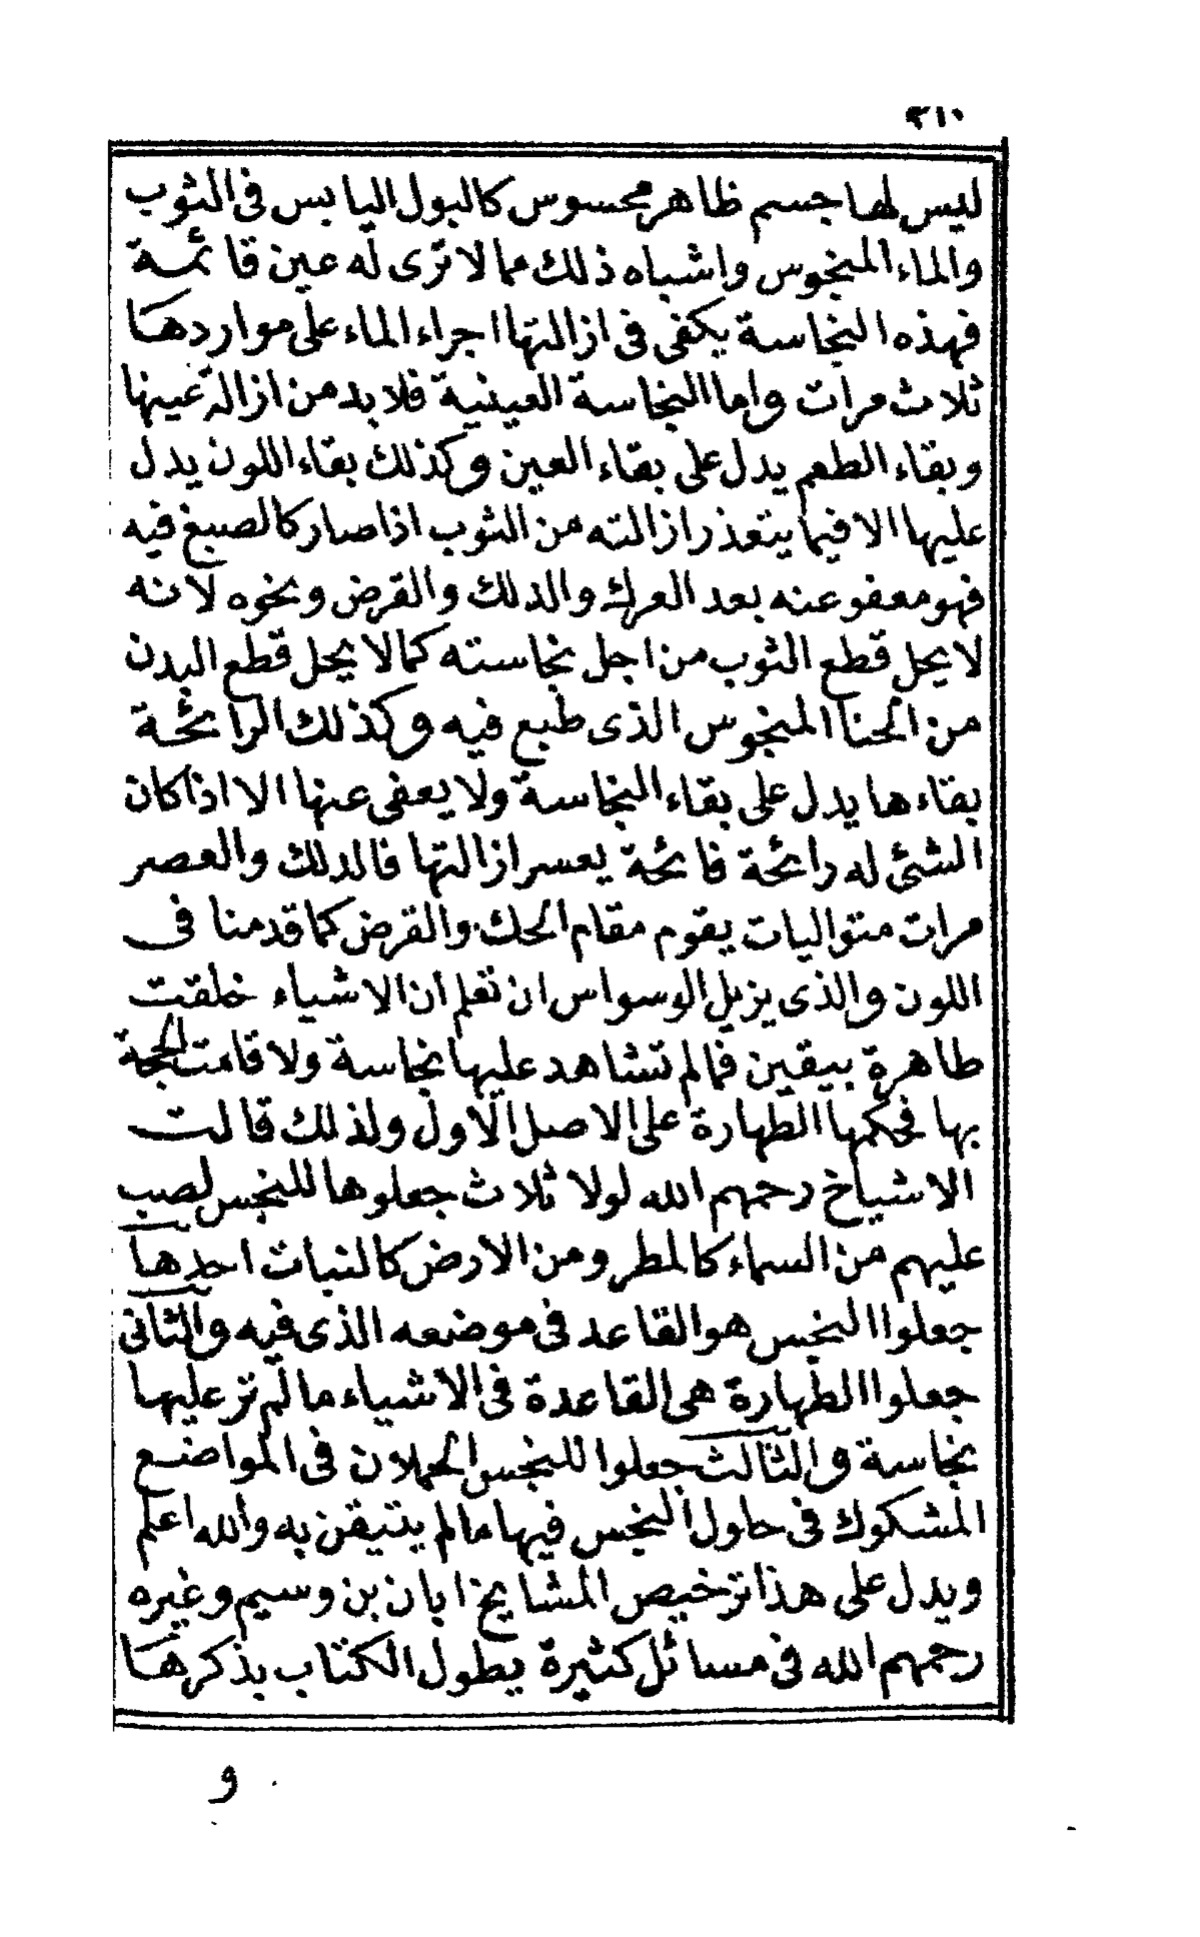 ٣١٠
ليس لها جسم ظاهر محسوس كالبول اليابس فى الثوب
والماء المنجوس واشباه ذلك مما لا ترى له عين قائمة
فهذه النجاسة يكفى فى ازالتها اجراء الماء على مواردها
ثلاث مرات واما النجاسة العينية فلا بد من ازالة عينها
وبقاء الطعم يدل على بقاء العين وكذلك بقاء اللون يدل
عليها الا فيما يتعذر ازالته من الثوب اذا صار كالصبغ فيه
فهو معفو عنه بعد العرك والدلك والقرض ونحوه لانه
لا يحل قطع الثوب من اجل نجاسته كما لا يحل قطع البدن
من الحنا المنجوس الذى طبع فيه وكذلك الرائحة
بقاءها يدل على بقاء النجاسة ولا يعفى عنها الا اذا كان
الشئ له رائحة فائحة يعسر ازالتها فالدلك والعصر
مرات متواليات يقوم مقام الحك والقرض كما قدمنا فى
اللون والذى يزيل الوسواس ان تعلم أن الاشياء خلقت
طاهرة بيقين فما لم تشاهد عليها نجاسة ولا قامت الحجة
بها فحكمها الطهارة على الاصل الأول ولذلك قالت
الاشياخ رحمهم الله لولا ثلاث جعلوها للنجس لصب
عليهم من السماء كالمطر ومن الأرض كالنبات احدها
جعلوا النجس هو القاعد فى موضعه الذى فيه والثانى
جعلوا الطهارة هى القاعدة فى الأشياء ما لم تر عليها
نجاسة والثالث جعلوا للنجس الحملان فى المواضع
المشكوك فى حلول النجس فيها ما لم يتيقن به والله اعلم
ويدل على هذا ترخيص المشايخ ابان بن وسيم وغيره
رحمهم الله فى مسائل كثيرة يطول الكتاب بذكرها
و